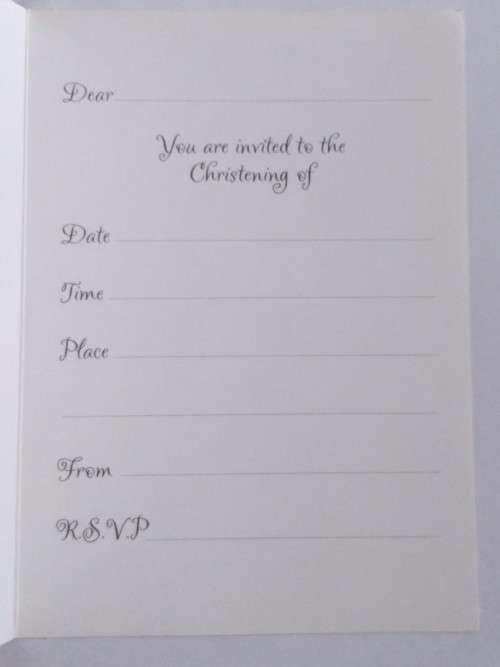 Dear
You are invited to the
Christening of
Date
Time
Place
From
R.S.V.P